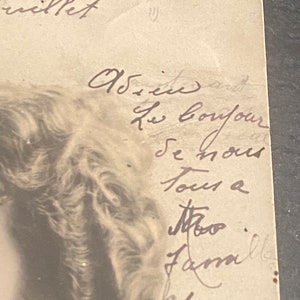 uillet
Adieu
Le bonjour
de nous
tous a
Famil